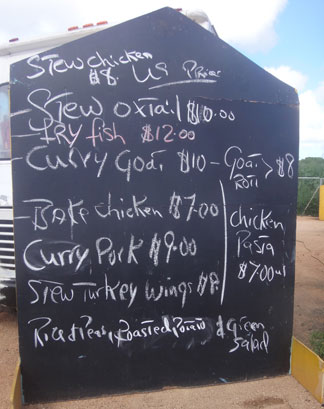 Stew chicken
$8. US Prices
Stew oxtail $10.00
Fry fish $12.00
Curry Goat $10 - Goat > $8
Roti
Bake chicken $7.00
Chicken
Pasta
$7.00
Curry Pork $9.00
Stew Turkey Wings $8
Rice & Peas, Roasted Potato & Green
Salad